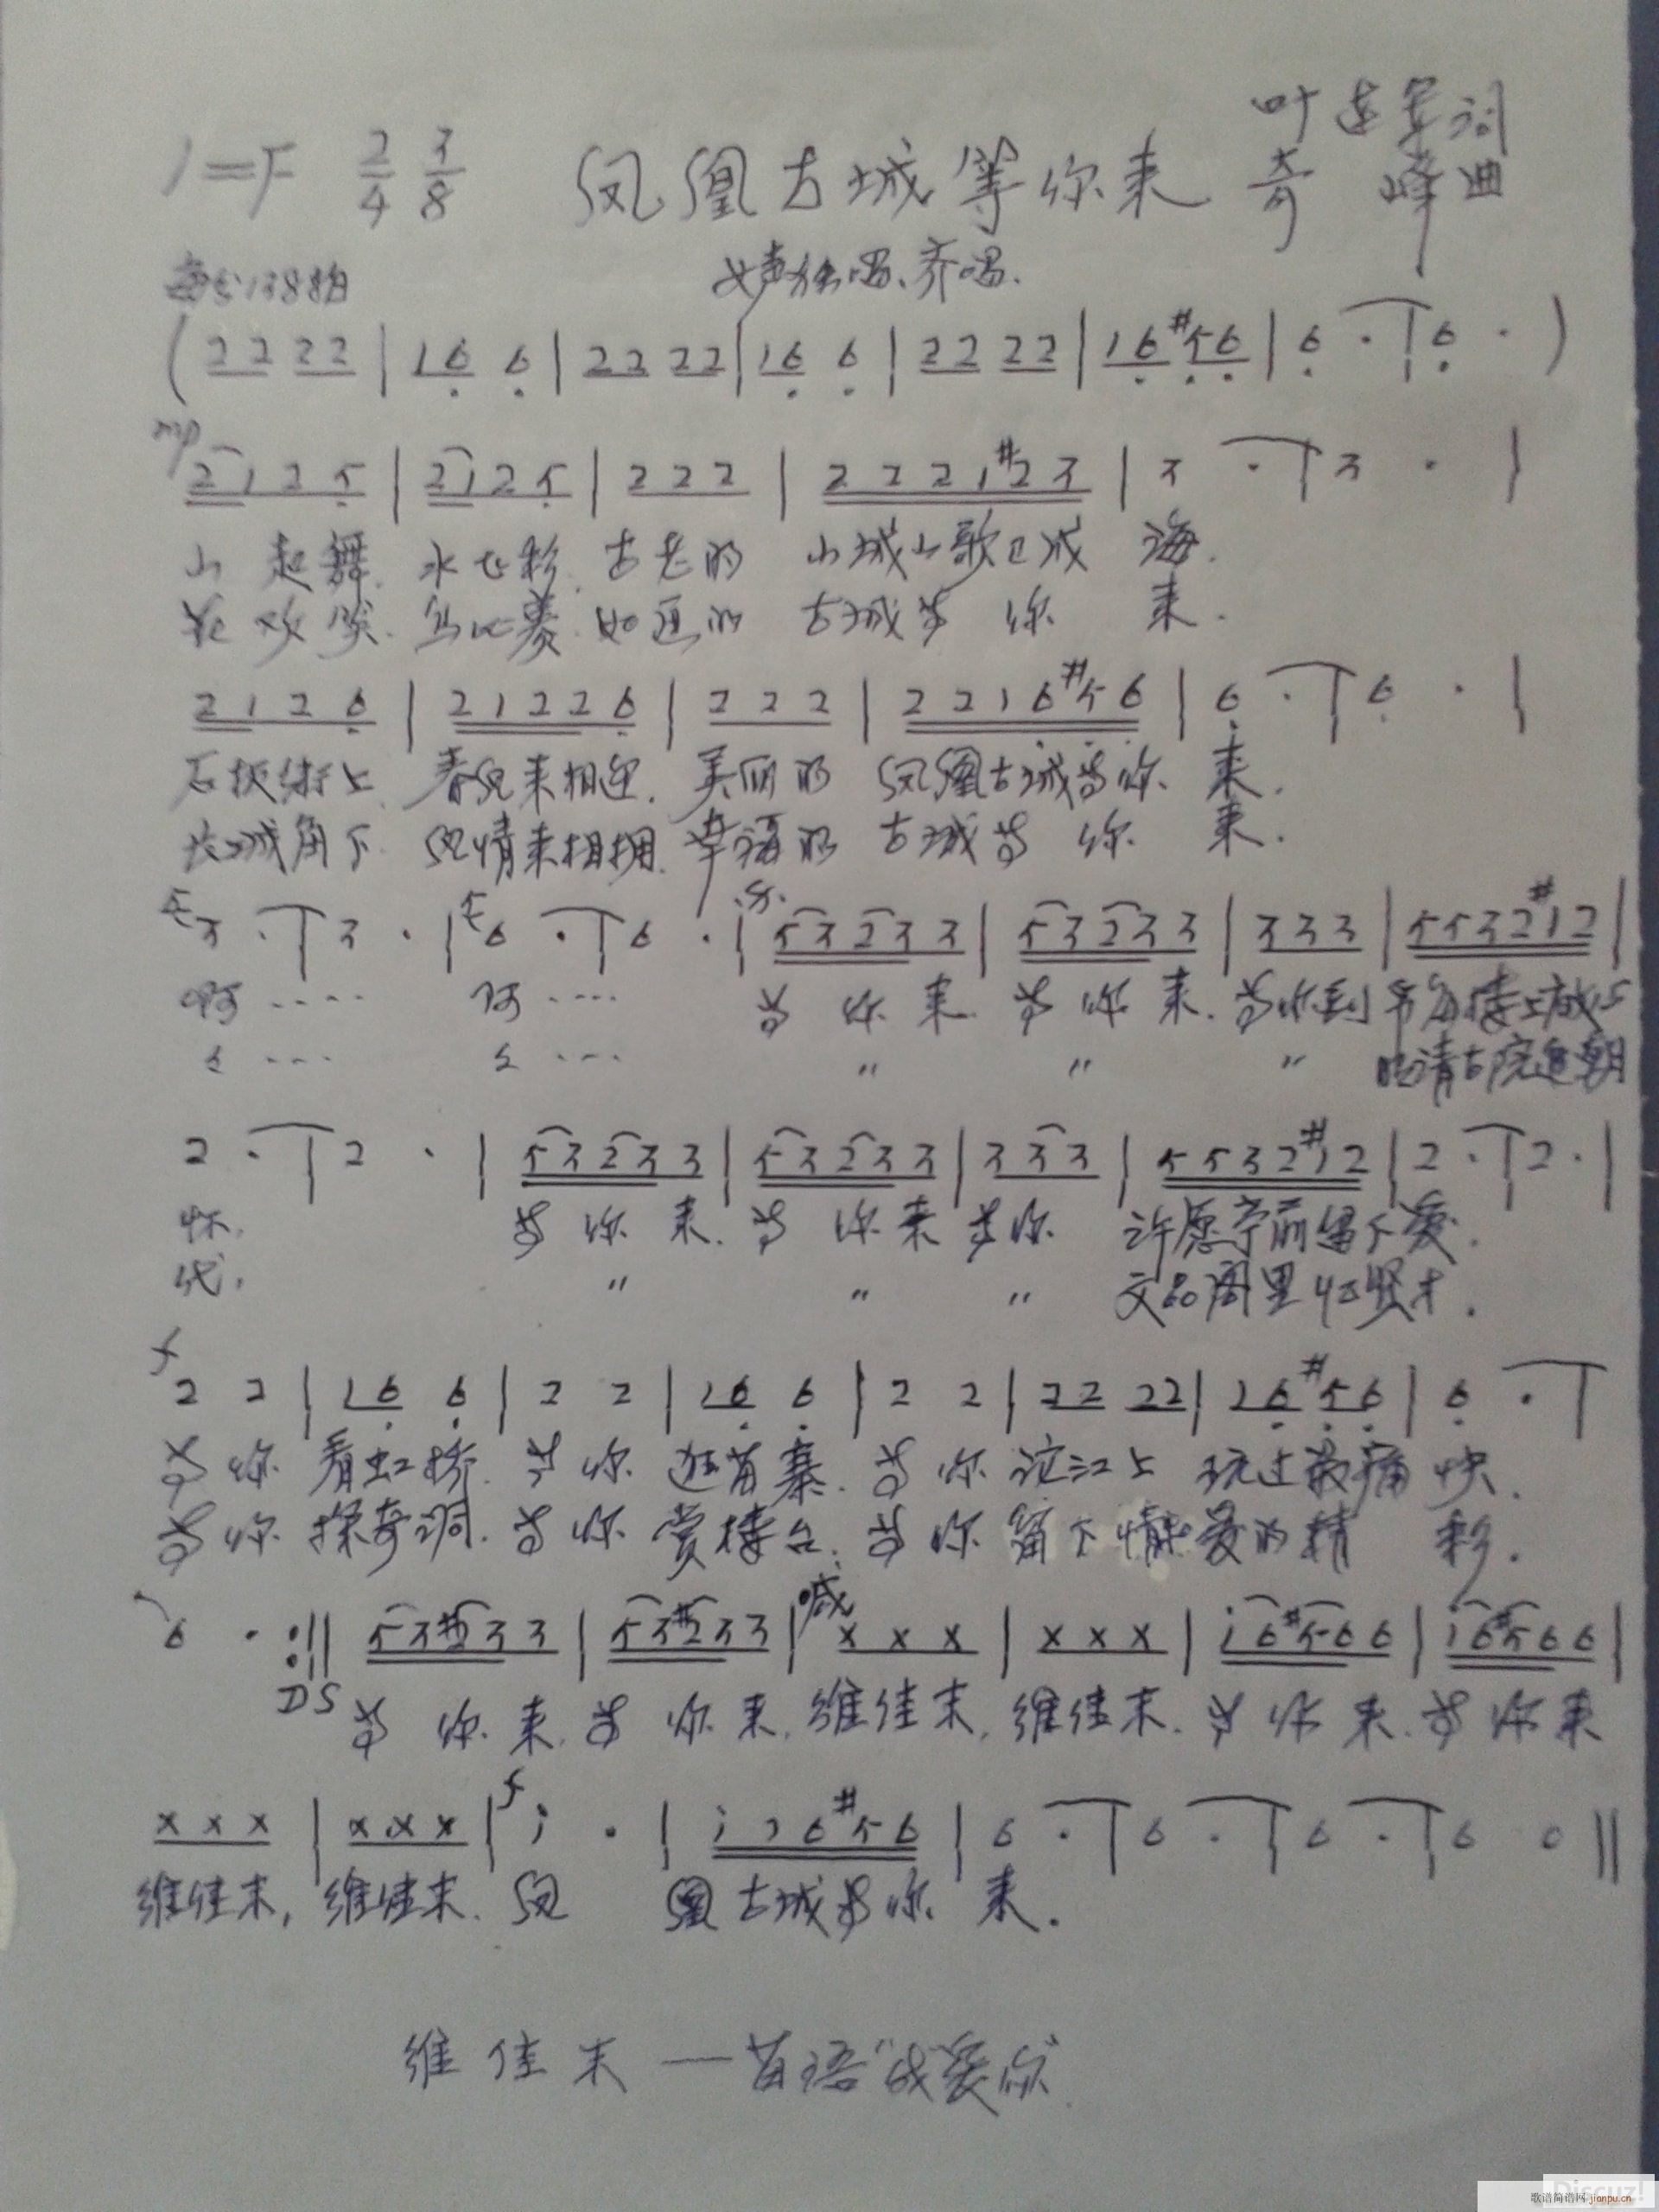 叶 军词
1=F 2/4 3/8 凤凰古城等你来 奇 峰曲
每分138拍 女声独唱、齐唱.
( 22 22 | 16 6 | 22 22 | 16 6 | 22 22 | 16 #56 | 6 · | 6 · )
mp
2 1 2 5 | 2 1 2 5 | 2 2 2 | 2 2 2 1 #2 3 | 3 · | 3 · |
山 起舞. 水飞彩. 古老的 山城山歌已成 海.
花欢笑. 如画的 古城等 你 来.
2 1 2 6 | 2 1 2 2 6 | 2 2 2 | 2 2 1 6 #5 6 | 6 · | 6 · |
石板街上. 春风来相迎. 美丽的 凤凰古城等你 来.
长城角下. 风情来相拥. 幸福的 古城等 你 来.
3 · | 3 · | 6 · | 6 · | 5 3 2 3 3 | 5 3 2 3 3 | 3 3 3 | 5 5 3 2 #1 2 |
啊 ···· 阿 ···· 等 你 来. 等 你 来. 等你到 楼上
··· ··· " " " 请古院
2 · | 2 · | 5 3 2 3 3 | 5 3 2 3 3 | 3 3 3 | 5 5 3 2 #1 2 | 2 · | 2 · |
怀. 等 你 来. 等 你 来 等你 许愿亭前留下爱.
代. " " " 文 阁里 贤才.
f
2 2 | 16 6 | 2 2 | 16 6 | 2 2 | 22 22 | 16 #56 | 6 · |
等 你 看虹桥. 等 你 逛苗寨. 等 你 沱江上 玩过最痛 快.
等 你 探奇洞. 等 你 赏楼台. 等 你 留下情爱的精 彩.
6 · :|| 5 3 #2 3 3 | 5 3 #2 3 3 | 喊 x x x | x x x | i 6 #5 6 6 | i 6 #5 6 6 |
DS 等 你 来. 等 你 来. 维佳末, 维佳末. 等 你 来. 等 你 来
x x x | x x x | f i · | i i 6 #5 6 | 6 · | 6 · | 6 · | 6 0 ||
维佳末, 维佳末. 凤 凰古城等你 来.
维 佳 末 —— 苗语"我爱你"
歌谱简谱网 jianpu.cn
Discuz!